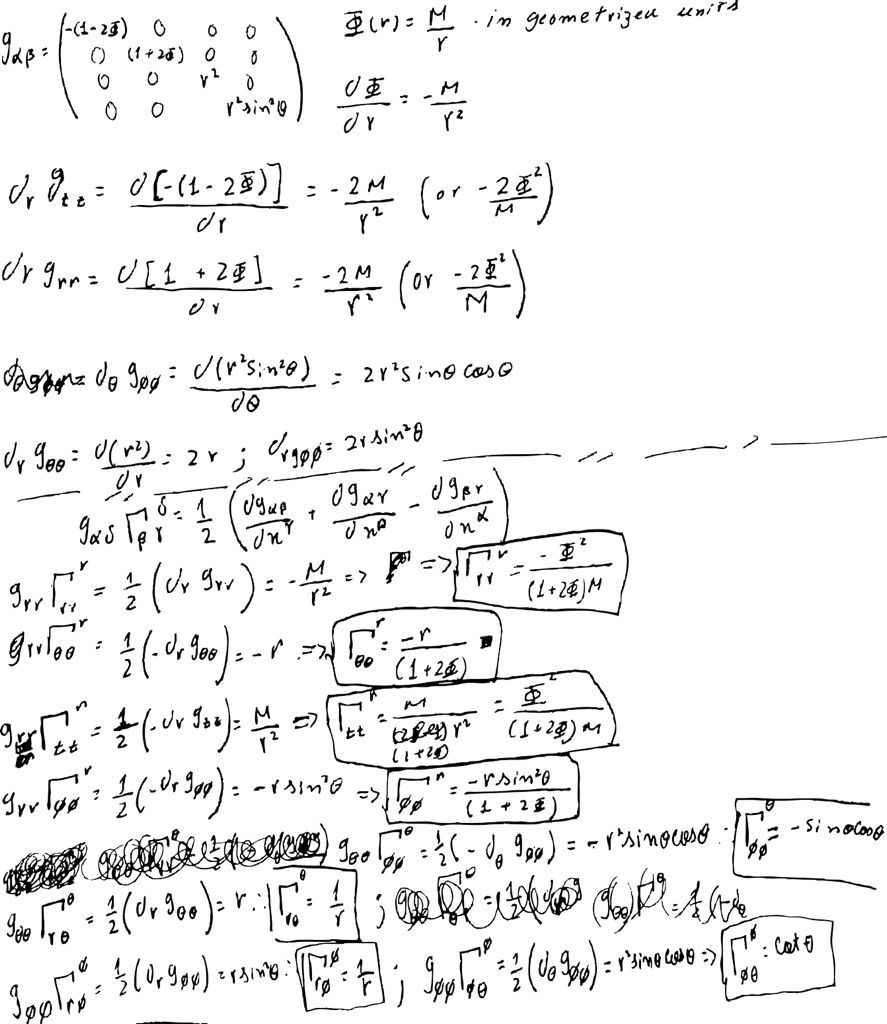 g_{αβ} = ( -(1-2Φ) 0 0 0 Φ(r) = M/r . in geometrized units
0 (1+2Φ) 0 0
0 0 r² 0 dΦ/dr = -M/r²
0 0 r²sin²θ )
∂_r g_{tt} = ∂[-(1-2Φ)]/∂r = -2M/r² (or -2Φ²/M)
∂_r g_{rr} = ∂[1+2Φ]/∂r = -2M/r² (or -2Φ²/M)
∂_θ g_{φφ} = ∂(r²sin²θ)/∂θ = 2r²sinθcosθ
∂_r g_{θθ} = ∂(r²)/∂r = 2r ; ∂_r g_{φφ} = 2r sin²θ
g_{αδ} Γ^δ_{βγ} = 1/2 (∂g_{αβ}/∂x^γ + ∂g_{αγ}/∂x^β - ∂g_{βγ}/∂x^α)
g_{rr} Γ^r_{rr} = 1/2 (∂_r g_{rr}) = -M/r² => => Γ^r_{rr} = -Φ²/(1+2Φ)M
g_{rr} Γ^r_{θθ} = 1/2 (-∂_r g_{θθ}) = -r => Γ^r_{θθ} = -r/(1+2Φ)
g_{rr} Γ^r_{tt} = 1/2 (-∂_r g_{tt}) = M/r² => Γ^r_{tt} = M/(1+2Φ)r² = Φ²/(1+2Φ)M
g_{rr} Γ^r_{φφ} = 1/2 (-∂_r g_{φφ}) = -r sin²θ => Γ^r_{φφ} = -r sin²θ/(1+2Φ)
g_{θθ} Γ^θ_{φφ} = 1/2 (-∂_θ g_{φφ}) = -r²sinθcosθ ∴ Γ^θ_{φφ} = -sinθcosθ
g_{θθ} Γ^θ_{rθ} = 1/2 (∂_r g_{θθ}) = r ∴ Γ^θ_{rθ} = 1/r ;
g_{φφ} Γ^φ_{rφ} = 1/2 (∂_r g_{φφ}) = r sin²θ ∴ Γ^φ_{rφ} = 1/r ; g_{φφ} Γ^φ_{φθ} = 1/2 (∂_θ g_{φφ}) = r²sinθcosθ => Γ^φ_{φθ} = cotθ